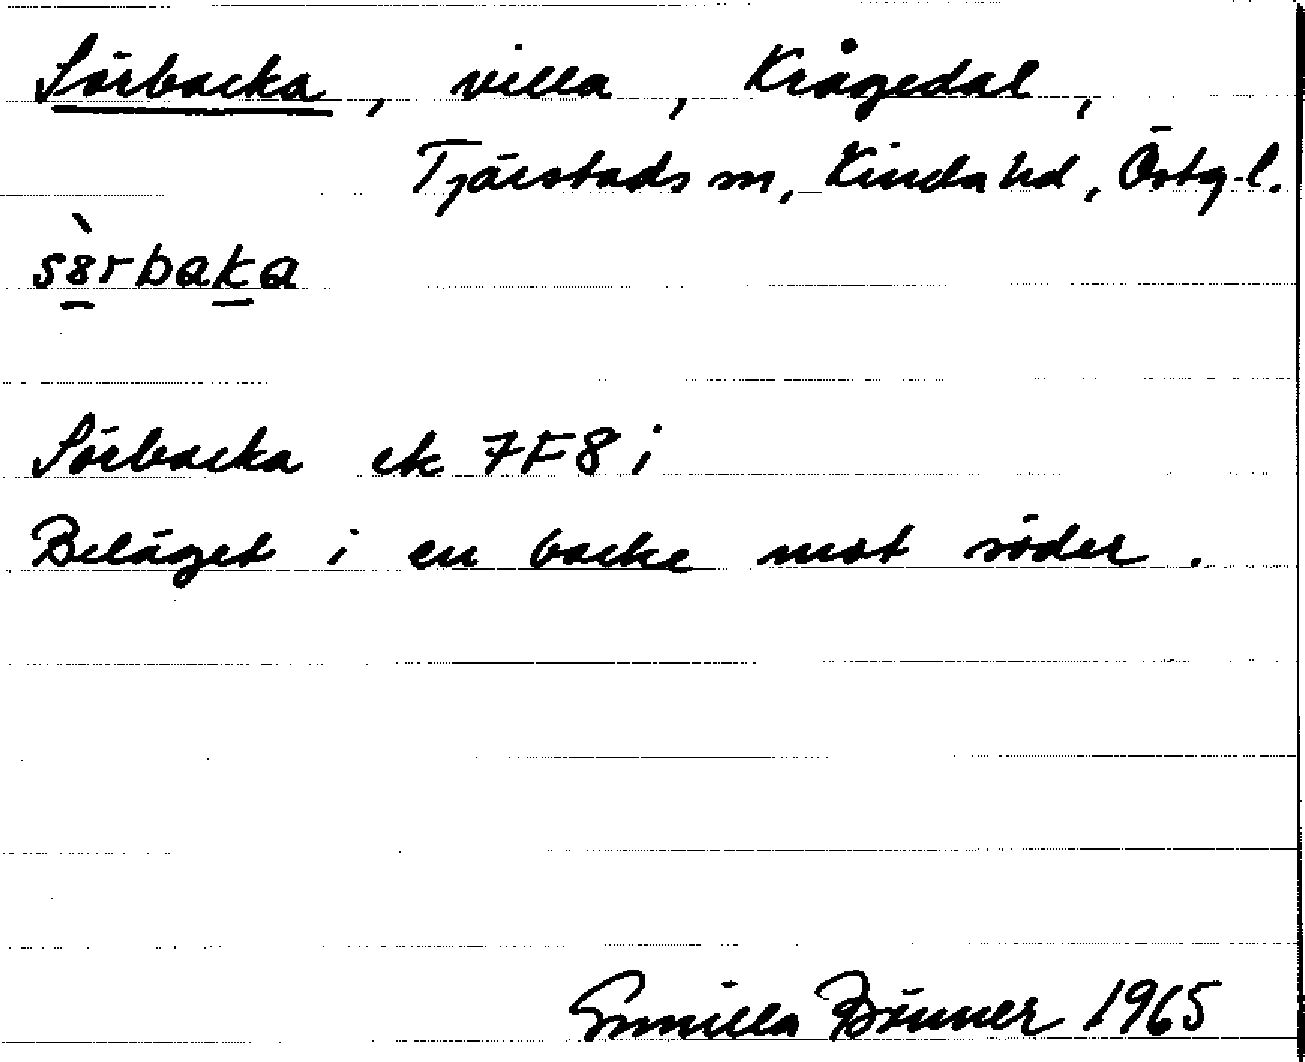 Sörbacka, villa, Krågedal,
Tjärstads sn, Kinda hd, Östg.l.
sö̀rbaka
Sörbacka ek 7F8i
Beläget i en backe mot söder.
Gunilla Brünner 1965